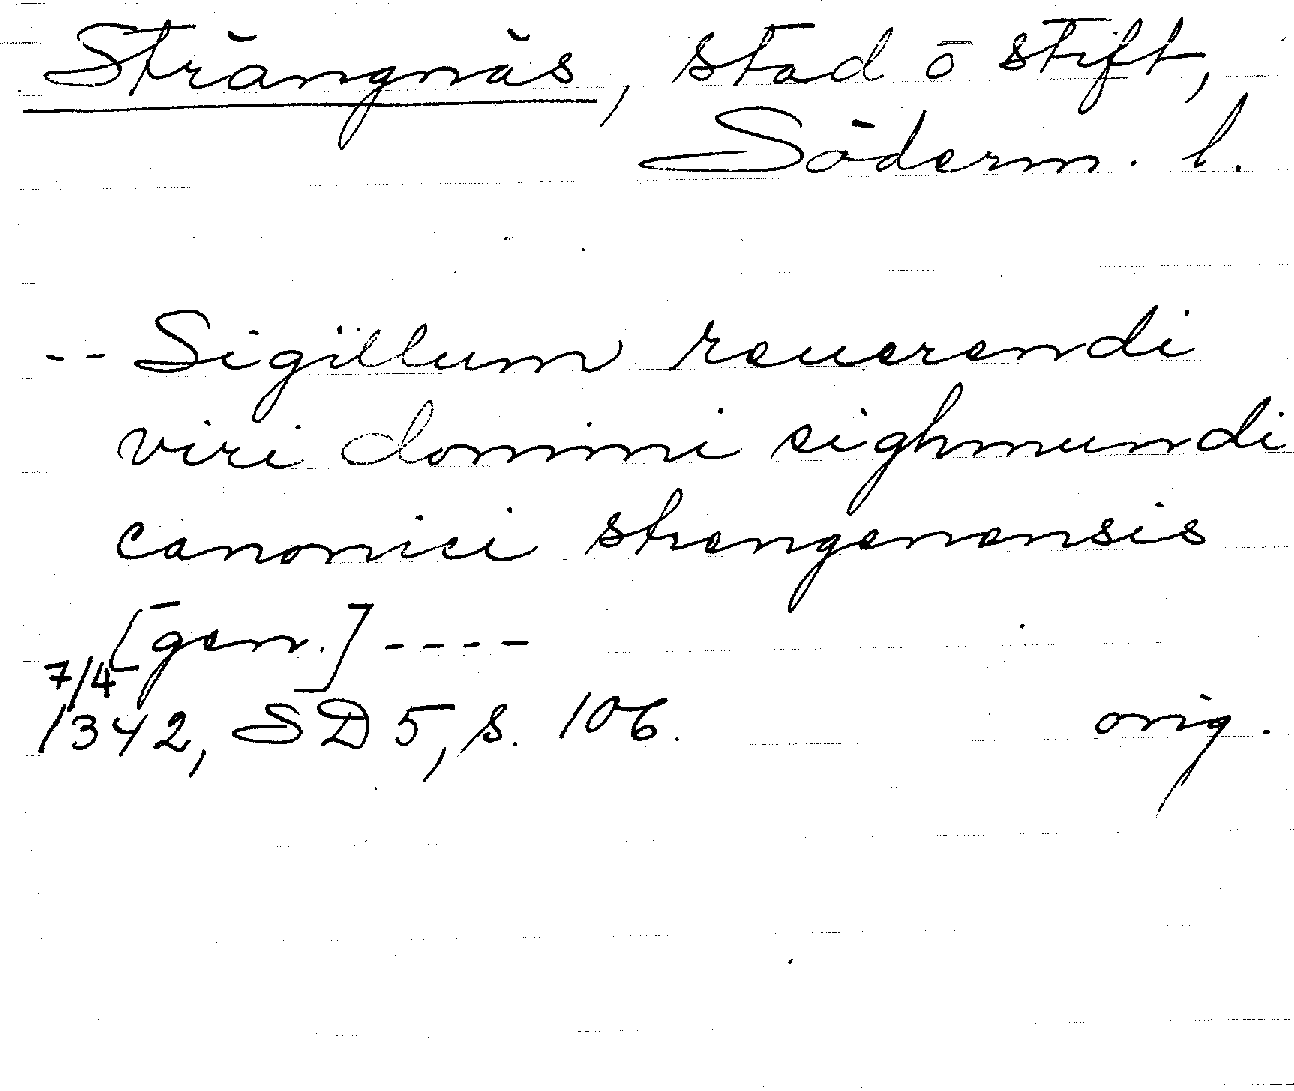 Strängnäs, stad o stift,
Söderm. l.
-- Sigillum reuerendi
viri domini sighmundi
canonici strengenensis
[gen.] ----
7/4
1342, SD 5, s. 106.
orig.